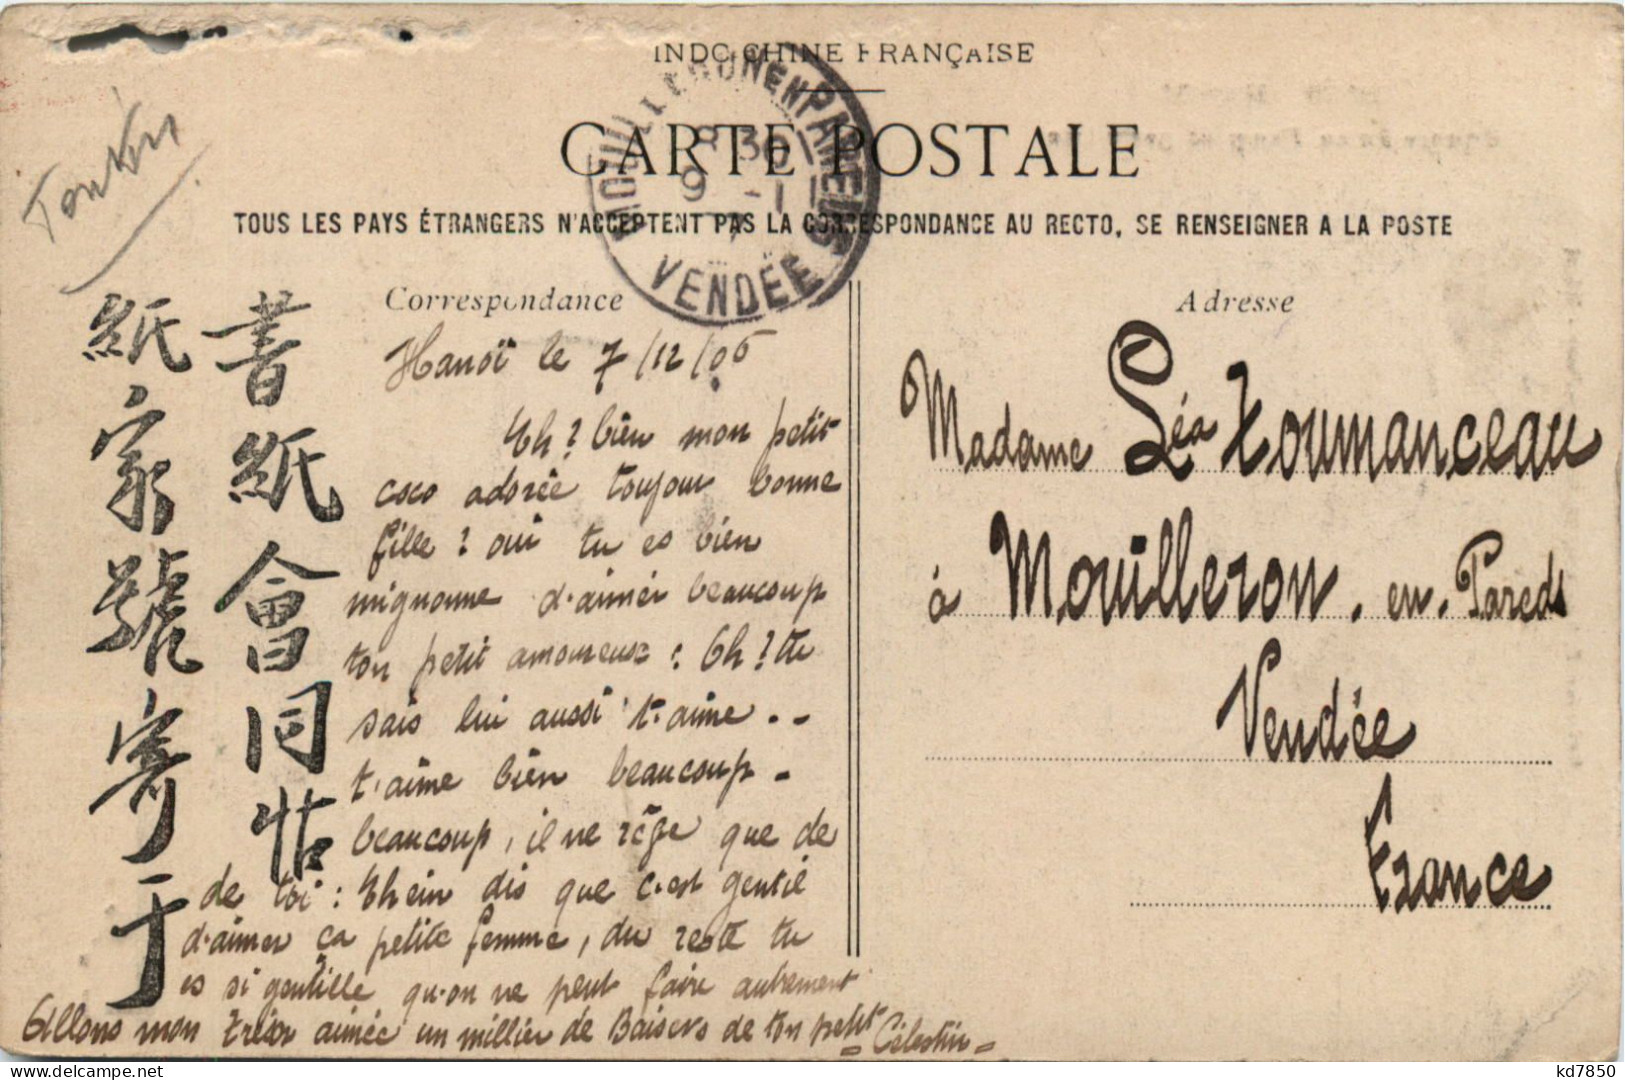 INDO-CHINE FRANÇAISE
CARTE POSTALE
TOUS LES PAYS ÉTRANGERS N'ACCEPTENT PAS LA CORRESPONDANCE AU RECTO, SE RENSEIGNER A LA POSTE
MOUILLERON EN PAREDS
8 30
9 -1
VENDÉE
Tonkin
書紙會同帖
紙家號寄于
Correspondance
Hanoï le 7/12/06
Eh? bien mon petit
coco adorée toujour bonne
fille? oui tu es bien
mignonne d'aimer beaucoup
ton petit amoureux: Eh? tu
sais lui aussi t'aime..
t'aime bien beaucoup.
beaucoup, il ne rêve que de
de toi: Ehein dis que c'est gentil
d'aimer ça petite femme, du reste tu
es si gentille qu'on ne peut faire autrement
Allons mon trésor aimée un millier de Baisers de ton petit Célestin
Adresse
Madame Léa Toumanceau
à Mouilleron.en.Pareds
Vendée
France
kd7850